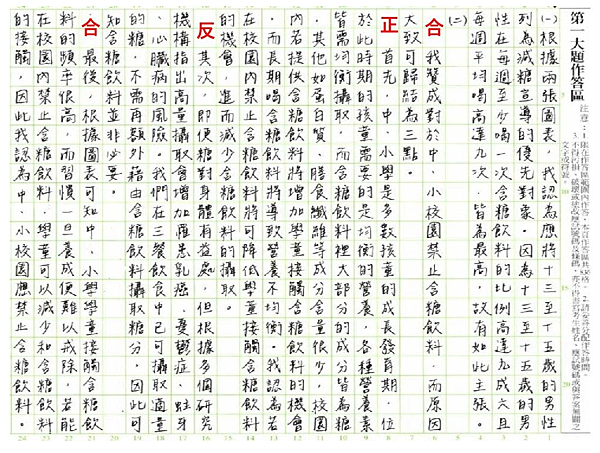 第一大題作答區
注意：1.限在作答區範圍內作答，本頁作答區共 格。 2.請妥善分配作答時間。
3.不得污損、破壞或塗改應試號碼及條碼，亦不得書寫考生姓名、應試號碼或與答案無關之
文字或符號。
(一)根據兩張圖表，我認為應將十三至十五歲的男性
列為減糖宣導的優先對象。因為十三至十五歲的男
性在每週至少喝一次含糖飲料的比例高達九成六且
每週平均喝高達九次，皆為最高，故有如此主張。
(二)
合
我贊成對於中、小校園禁止含糖飲料，而原因
大致可歸結為三點。
正
首先，中、小學是多數孩童的成長發育期，位
於此時的孩童需要的是均衡的營養，各種營養素
皆需均衡攝取，而含糖飲料裡大部分的成分皆為糖
，其他如蛋白質、膳食纖維等成分含量低，校園
內若提供含糖飲料將增加學童接觸含糖飲料的機會
，而長時間接觸含糖飲料將導致營養不均衡。我認為
在校園內禁止含糖飲料將可降低學童接觸含糖飲料
的機會，進而減少含糖飲料的攝取。
反
其次，即便 對身體有益處，但根據多個研究
機構指出高量糖攝取會增加罹患乳癌、憂鬱症、蛀牙
、心臟病的風險。我們在三餐飲食中，
的糖，不需再額外藉由含糖飲料攝取糖分，因此可
知含糖飲料並非必要。
合
最後，根據圖表可知中、小學學童接觸含糖飲
料的頻率很高，而習慣一旦養成便難以戒除，若能
在校園內禁止含糖飲料，學童可以減少和含糖飲料
的接觸，因此我認為中、小校園應禁止含糖飲料。